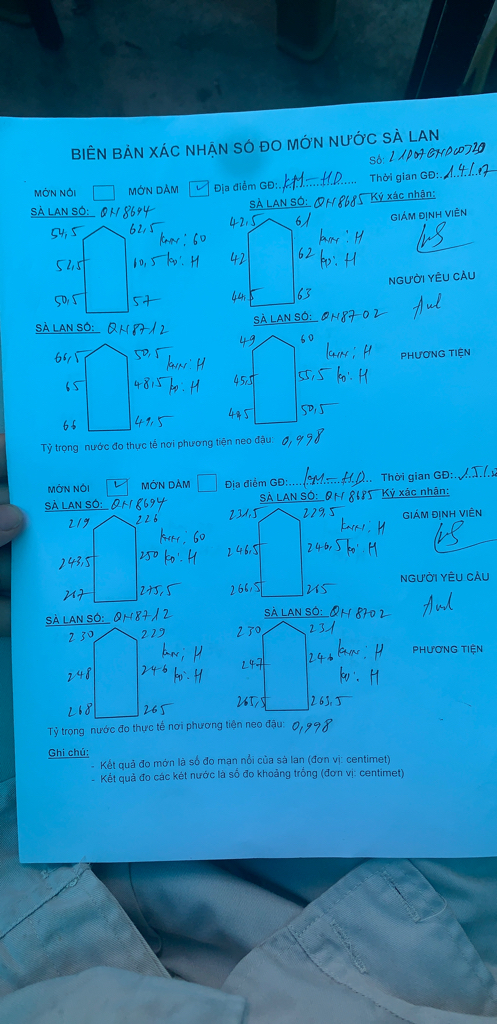 BIÊN BẢN XÁC NHẬN SỐ ĐO MỚN NƯỚC SÀ LAN
Số:
MỚN NỔI MỚN DẦM Địa điểm GĐ: KM-HD Thời gian GĐ:
SÀ LAN SỐ: QN8694 SÀ LAN SỐ: QN8685 Ký xác nhận:
54,5 62,5 42,5 61
GIÁM ĐỊNH VIÊN
52,5 60,5 42 62
50,5 57 44,5 63
NGƯỜI YÊU CẦU
SÀ LAN SỐ: QN8712 SÀ LAN SỐ: QN8702
66,5 50,5 49 60
PHƯƠNG TIỆN
65 48,5 45,5 55,5
66 49,5 50,5
Tỷ trọng nước đo thực tế nơi phương tiện neo đậu: 0,998
MỚN NỔI MỚN DẦM Địa điểm GĐ: KM-HD Thời gian GĐ:
SÀ LAN SỐ: QN8694 SÀ LAN SỐ: QN8685 Ký xác nhận:
219 226 231,5 229,5
GIÁM ĐỊNH VIÊN
243,5 250 246,5 246,5
267 275,5 266,5 265
NGƯỜI YÊU CẦU
SÀ LAN SỐ: QN8712 SÀ LAN SỐ: QN8702
230 229 230 231
PHƯƠNG TIỆN
248 246 247 246
268 265 265,5 263,5
Tỷ trọng nước đo thực tế nơi phương tiện neo đậu: 0,998
Ghi chú:
- Kết quả đo mớn là số đo mạn nổi của sà lan (đơn vị: centimet)
- Kết quả đo các két nước là số đo khoảng trống (đơn vị: centimet)